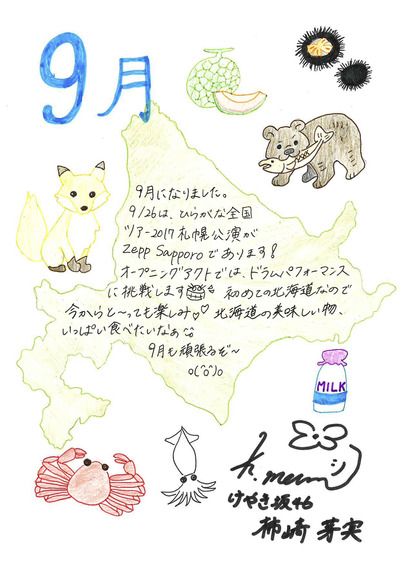 9月
9月になりました。
9/26は、ひらがな全国
ツアー2017 札幌公演が
Zepp Sapporoであります!
オープニングアクトでは、ドラムパフォーマンス
に挑戦します 初めての北海道なので
今からと〜っても楽しみ♡♡ 北海道の美味しい物、
いっぱい食べたいなぁ
9月も頑張るぞ〜
o(^o^)o
MILK
けやき坂46
柿崎 芽実